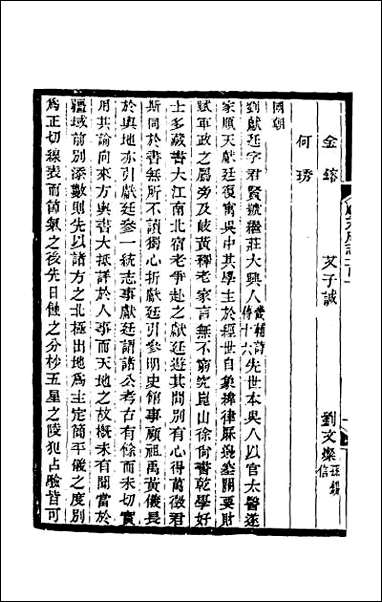 金鎔　艾子誠　劉文燦正鎰信
何琇
國朝
劉獻廷字君賢號繼莊大興人黃補詩傳十六先世本吳人以官太醫遂
家順天獻廷復寓吳中其學主於經世自象緯律厤邊塞關要財
賦軍政之屬旁及岐黃釋老家言無不窮究崑山徐尙書乾學好
士多藏書大江南北宿老爭赴之獻廷遊其間別有心得萬徵君
斯同於書無所不讀獨心折獻廷引參明史館事顧祖禹黃儀長
於輿地亦引獻廷參一統志事獻廷謂諸公考古有餘而未切實
用其論向來方輿書大抵詳於人事而天地之故槪未有聞當於
疆域前別添數則先以諸方之北極出地爲主定簡平儀之度別
爲正切線表而節氣之後先日蝕之分杪五星之陵犯占驗皆可